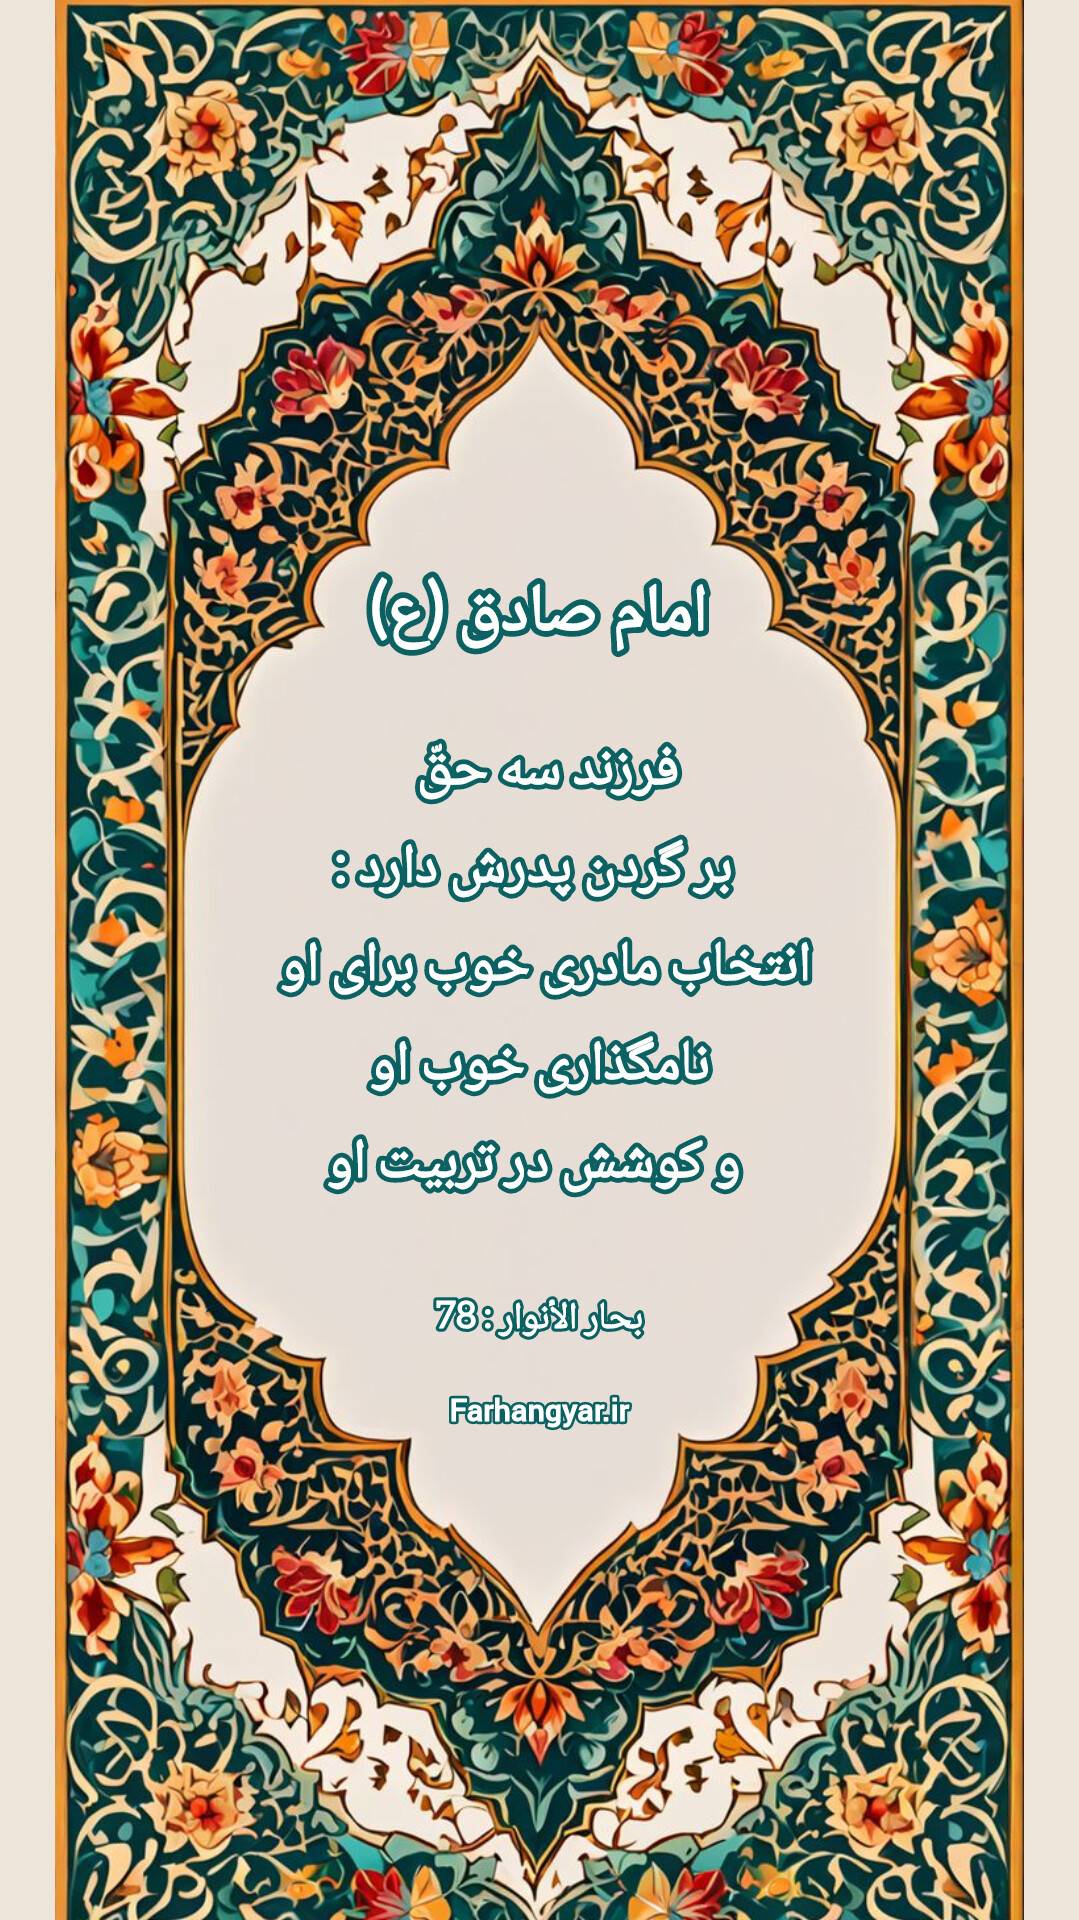 امام صادق (ع)
فرزند سه حقّ
بر گردن پدرش دارد :
انتخاب مادری خوب برای او
نامگذاری خوب او
و کوشش در تربیت او
بحار الأنوار : 78
Farhangyar.ir